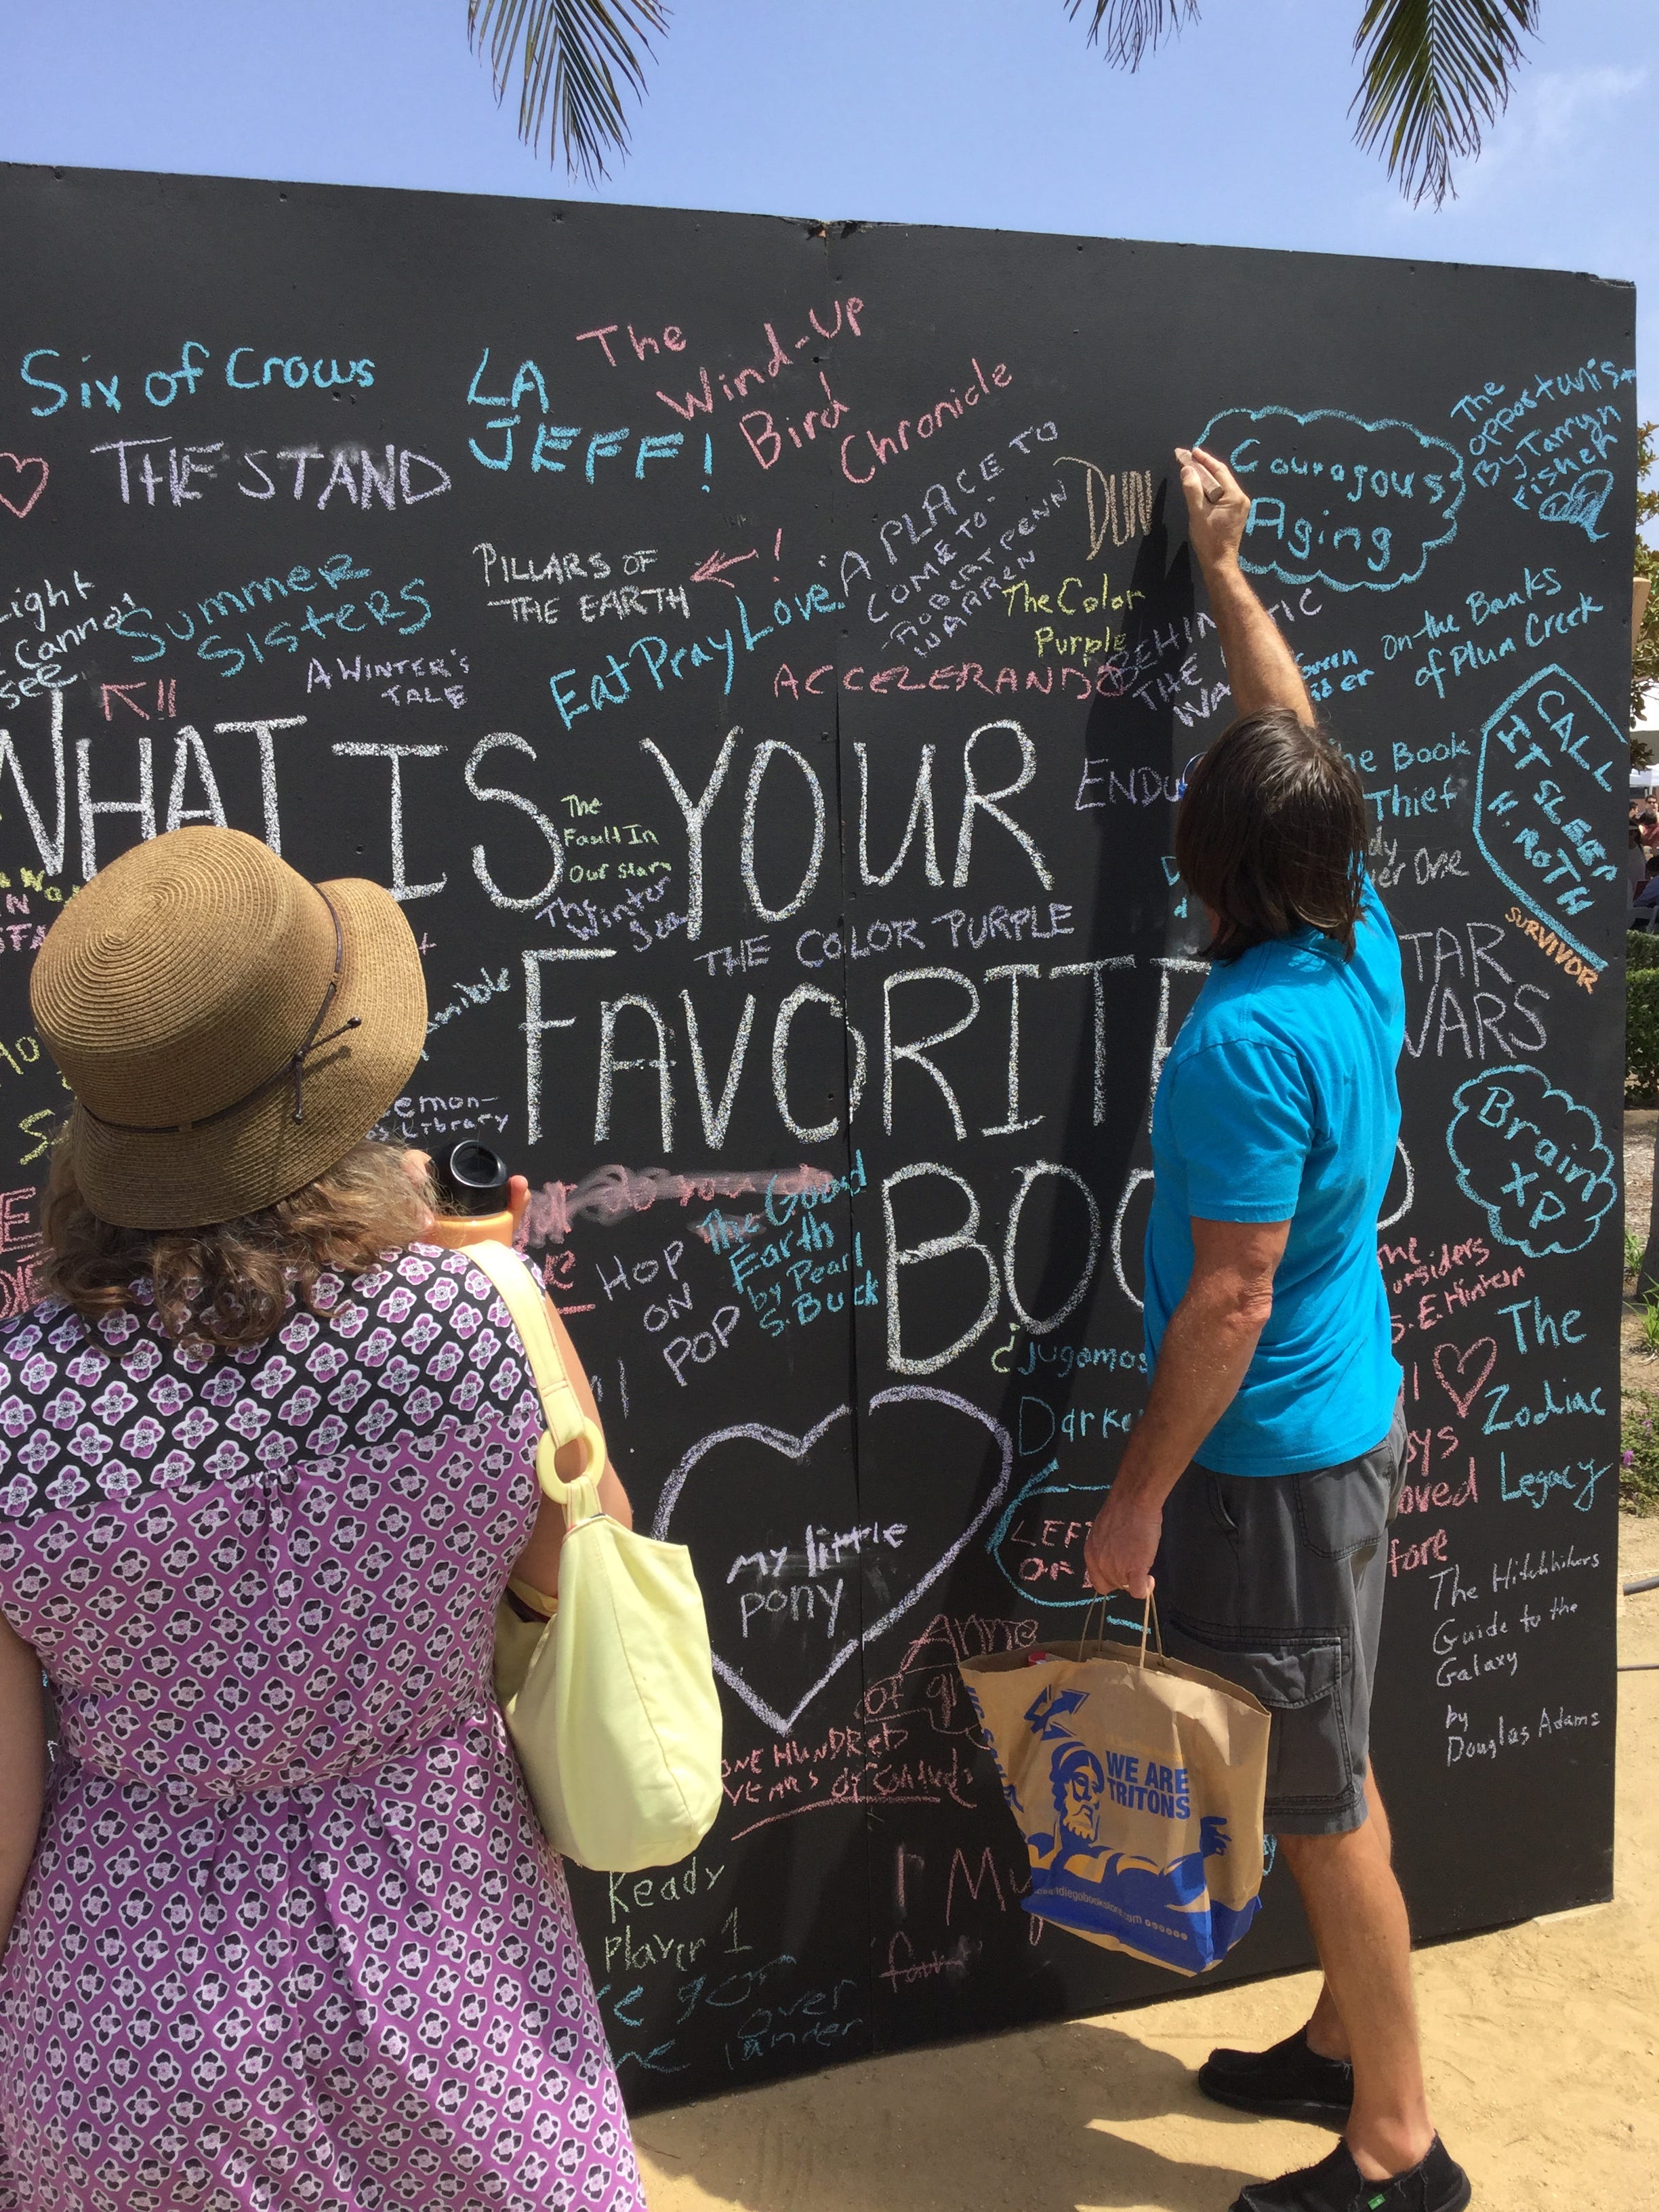 Six of Crows
LA
JEFF!
The
Wind-Up
Bird
Chronicle
THE STAND
A PLACE TO
COME TO
ROBERT PENN
WARREN
DUN
Couragous
Aging
The
opportunist
By Tarryn
Fisher
Light
Cannot
see
Summer
Sisters
PILLARS OF
THE EARTH
A WINTER'S
TALE
Eat Pray Love
The Color
Purple
ACCELERANDO
BEHIN
THE
On the Banks
of Plum Creek
WHAT IS YOUR
The
Fault In
Our stars
The
Winter
Sea
THE COLOR PURPLE
ENDU
he Book
Thief
dy
yer One
CALL
IT SLEEP
H. ROTH
SURVIVOR
TAR
WARS
FAVORITE
emon-
Library
Brain
XP
The Good
Earth
by Pearl
S. Buck
HOP
ON
POP
BOO
¿Jugamos
Darke
he
utsiders
S.E. Hinton
The
Zodiac
Legacy
ys
oved
fore
My little
pony
LEFT
OF
The Hitchhikers
Guide to the
Galaxy
by
Douglas Adams
Anne
of gr
ONE HUNDRED
YEARS of Solitude
WE ARE
TRITONS
Ready
Player 1
I My
over